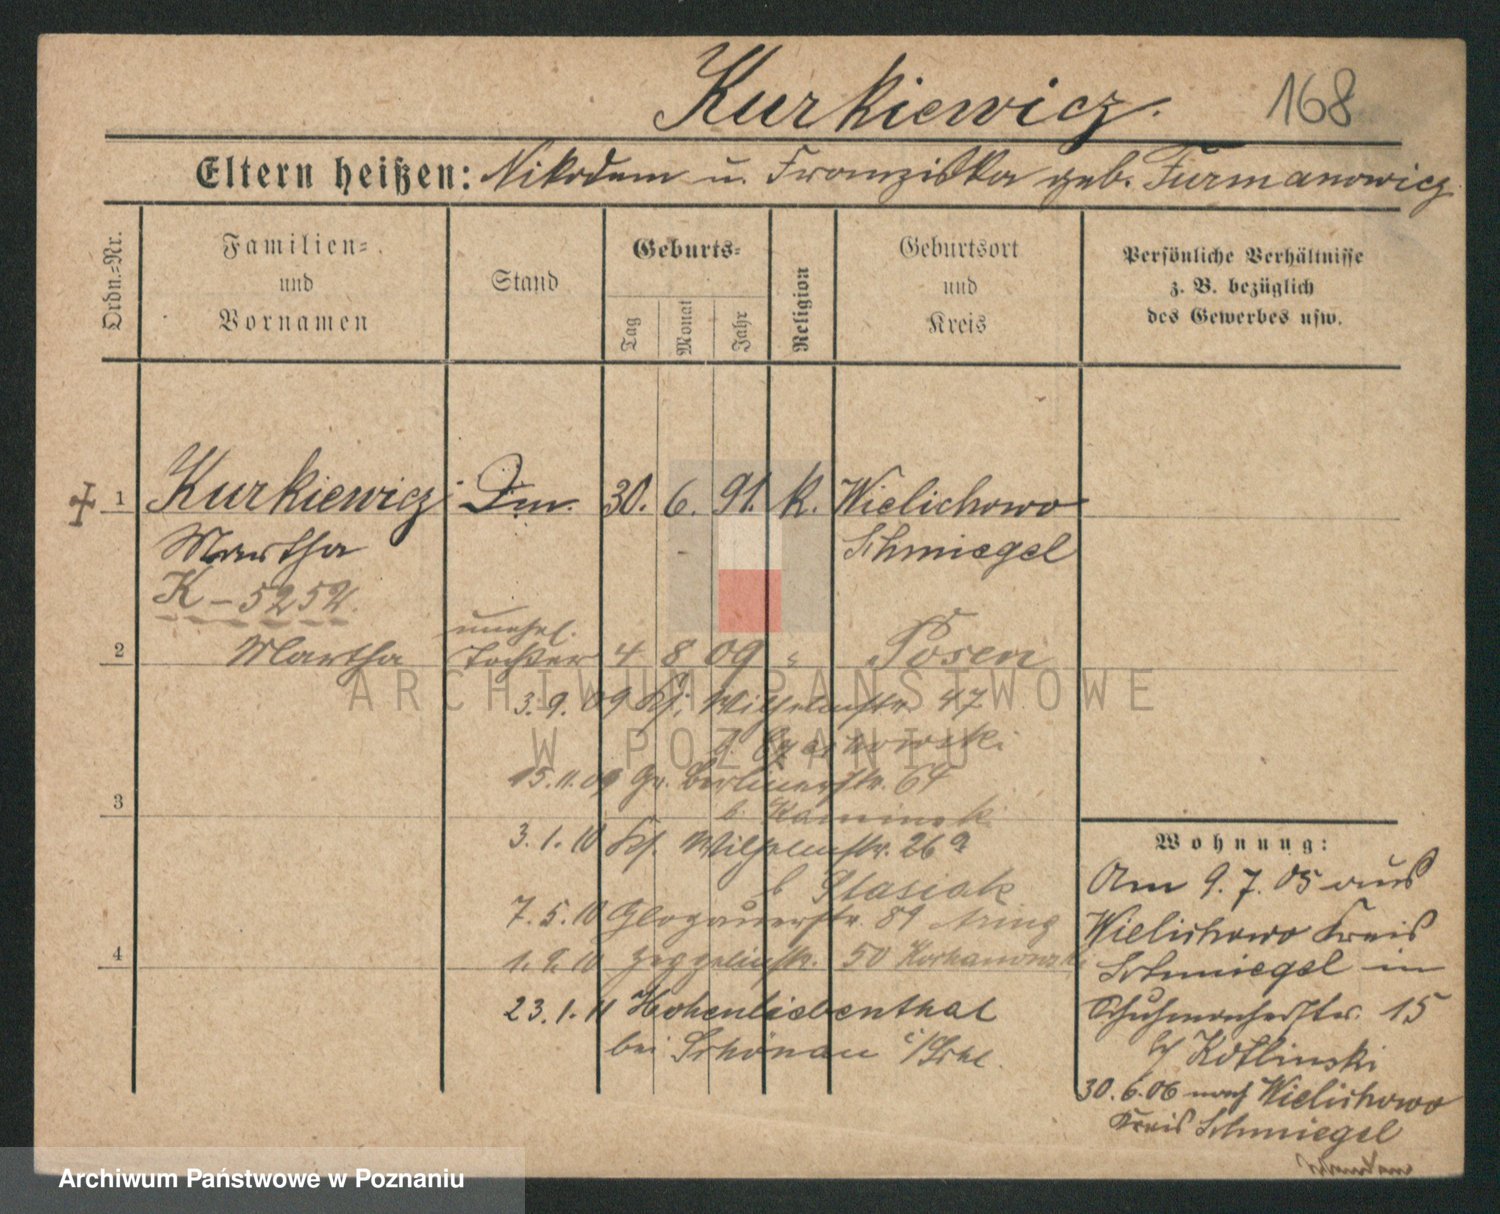 Kurkiewicz.
168
Eltern heißen: Nikodem u. Franziska geb. Furmanowicz
Ordn.=Nr.
Familien=
und
Vornamen
Stand
Geburts=
Tag
Monat
Jahr
Religion
Geburtsort
und
Kreis
Persönliche Verhältnisse
z. B. bezüglich
des Gewerbes usw.
1 Kurkiewicz 30. 6. 91. k. Wielichowo
Martha Schmiegel
K-5252.
unehel.
2 Martha Tochter 4 8 09 " Posen
3.9.09 Wilhelmstr. 47
15.11.09 Gr. Berlinerstr. 64
3
b. Kaminski
3.1.10 Wilhelmstr. 26a
b Stasiak
7.5.10 Glogauerstr. 89
4
1.9.10 50
23.1.11 Hohenliebenthal
bei Schönau
Wohnung:
Am 9.7.05 aus
Wielichowo Kreis
Schmiegel in
Schuhmacherstr. 15
b/ Kotlinski
30.6.06 nach Wielichowo
Kreis Schmiegel
ARCHIWUM PAŃSTWOWE
W POZNANIU
Archiwum Państwowe w Poznaniu